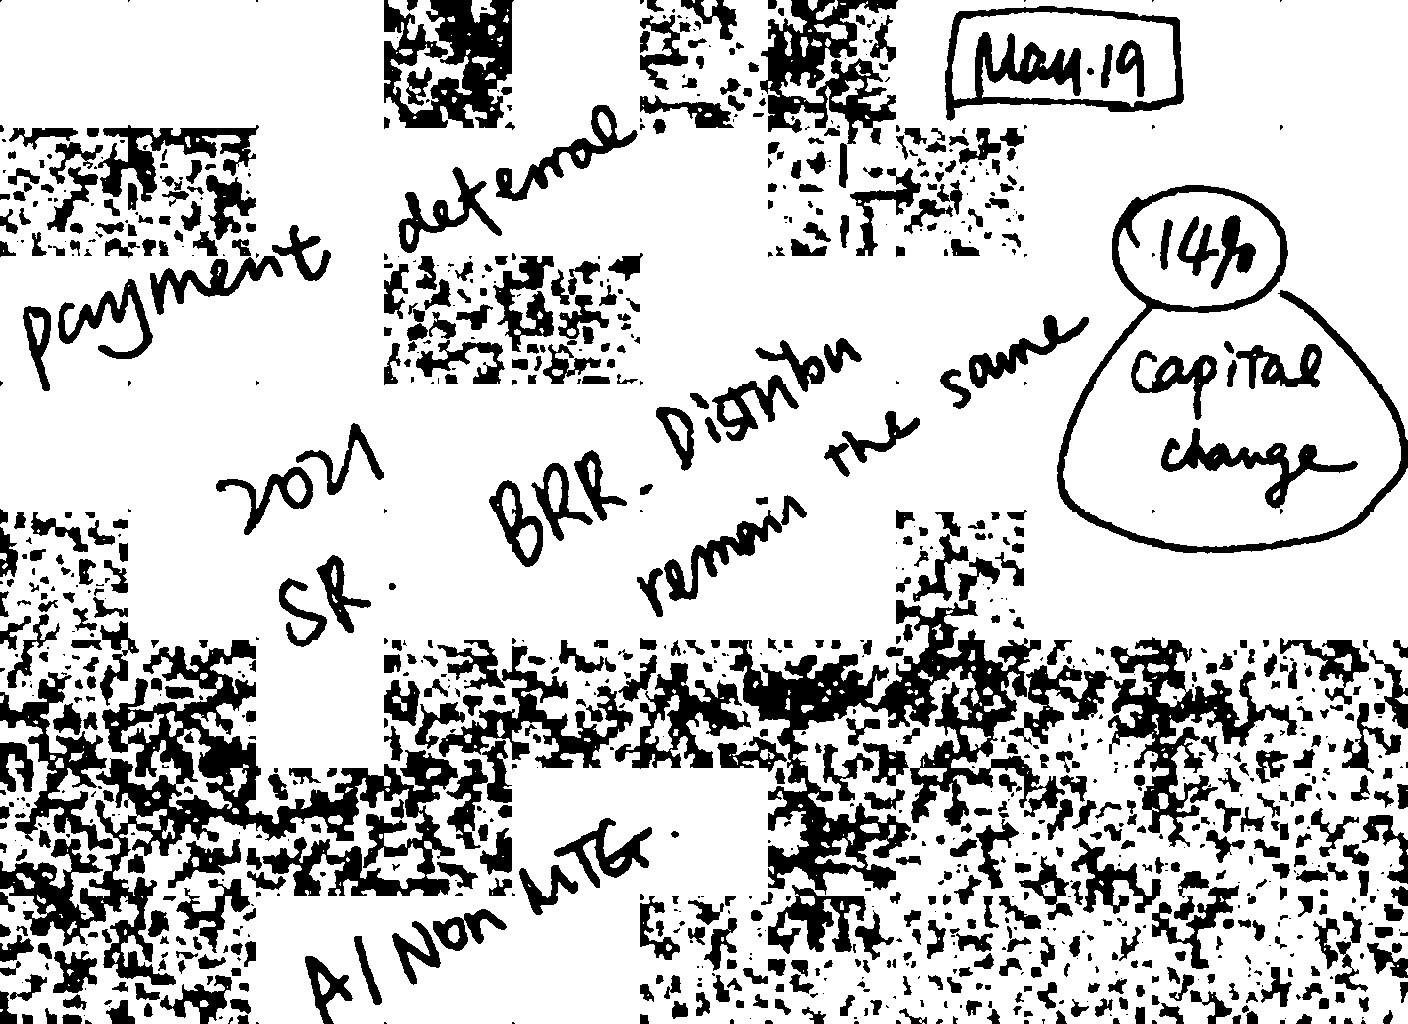 May.19
payment deferral
14%
capital
change
2021 BRR. Distribu
SR. remain the same
A/Non MTG.